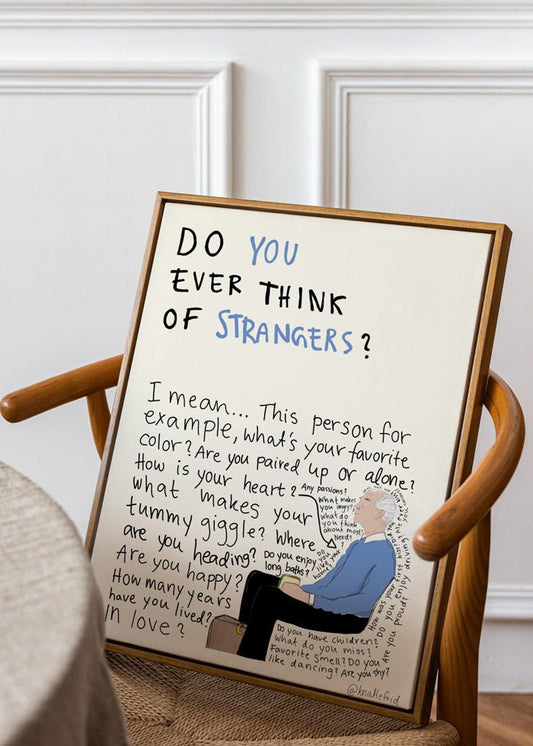 DO YOU
EVER THINK
OF STRANGERS?
I mean... This person for
example, what's your favorite
color? Are you paired up or alone?
How is your heart?
what makes your
tummy giggle? Where
are you heading?
Are you happy?
How many years
have you lived?
In love?
Any passions?
What makes
you angry?
What do
you think
about most?
Nerd?
Do you enjoy
long baths?
Do
you
like
Do you have children?
What do you miss?
Favorite smell? Do you
like dancing? Are you shy?
How was your first
Do you enjoy
Are you proud?
@knatlefrid